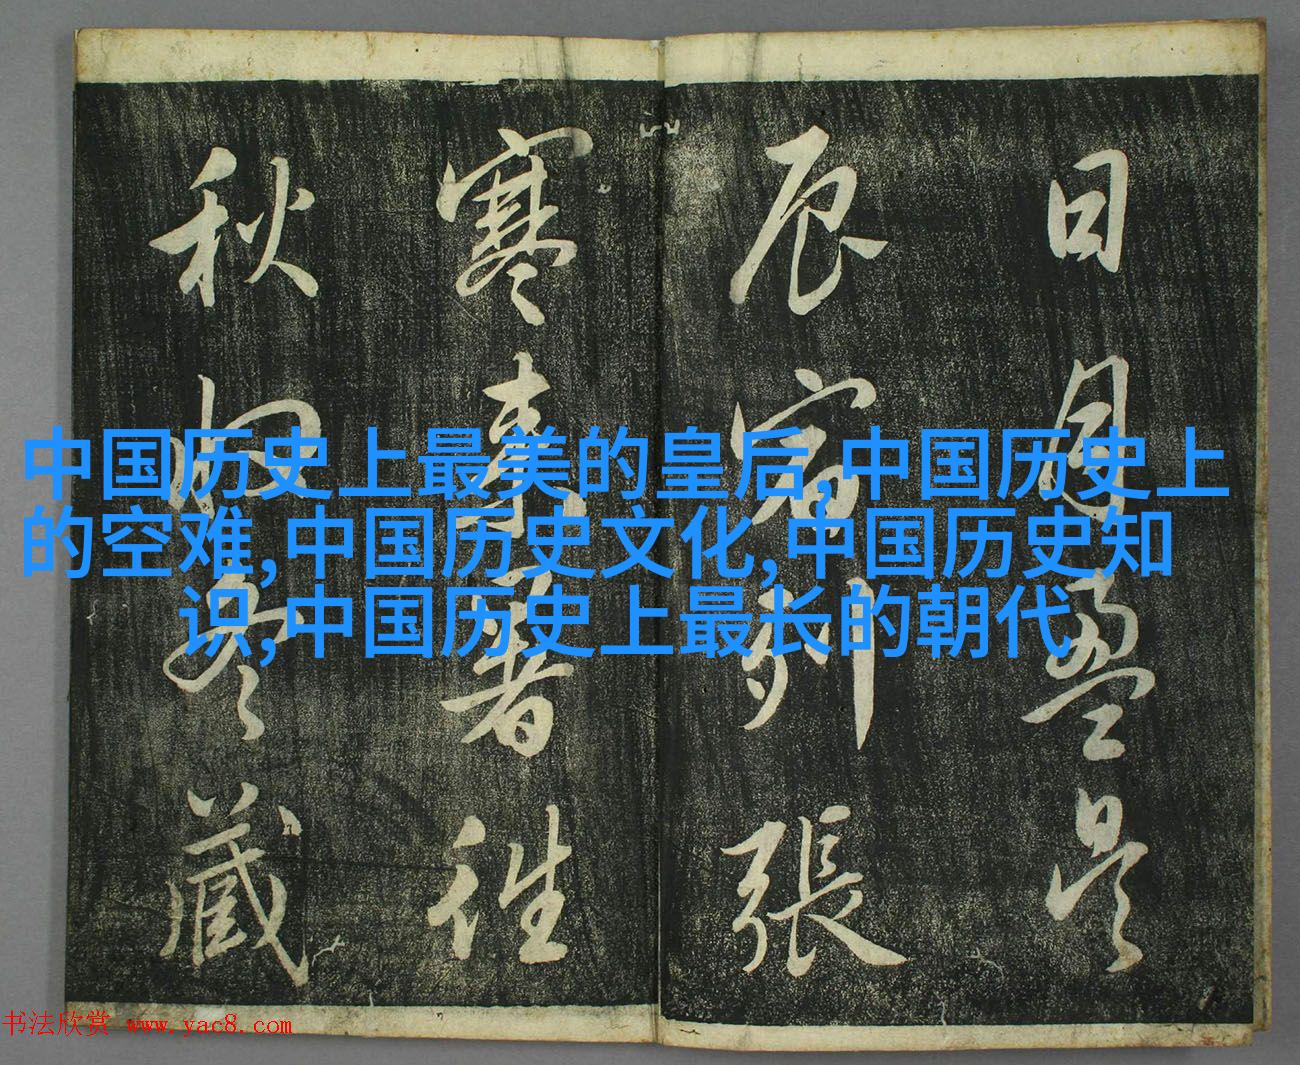 日月盈昃
辰宿列張
寒來暑往
秋收冬藏
中国历史上最美的皇后,中国历史上
的空难,中国历史文化,中国历史知
识,中国历史上最长的朝代
书法欣赏 www.yac8.com